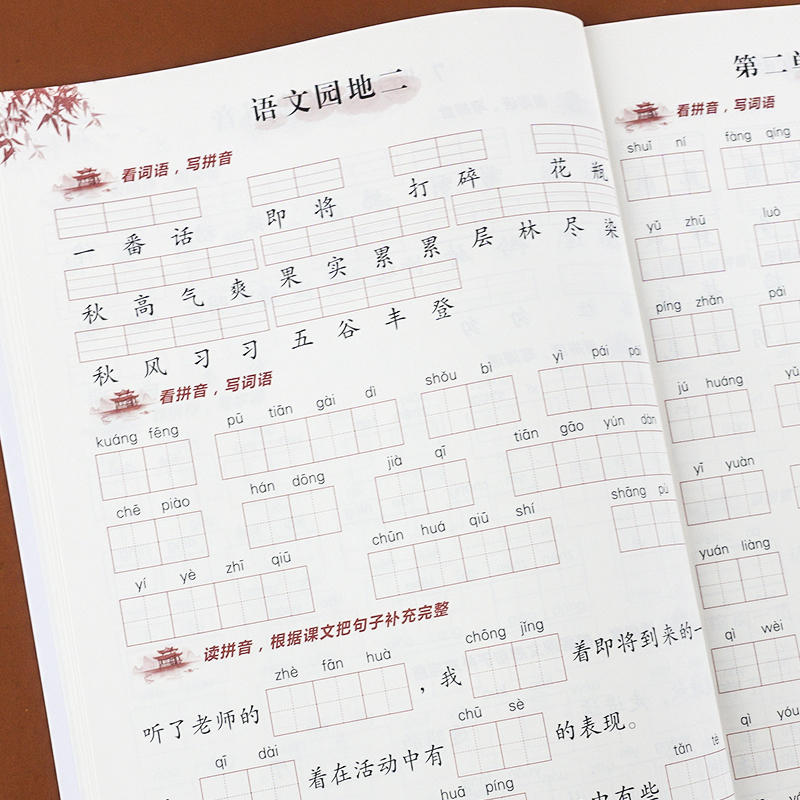 语文园地二
看词语，写拼音
一番话 即将 打碎 花瓶
秋高气爽 果实累累 层林尽染
秋风习习 五谷丰登
看拼音，写词语
kuáng fēng pū tiān gài dì shǒu bì yì pái pái
chē piào hán dōng jià qī tiān gāo yún dàn
yí yè zhī qiū chūn huá qiū shí shāng
读拼音，根据课文把句子补充完整
zhè fān huà chōng jǐng
听了老师的 ，我 着即将到来的一
qī dài chū sè
着在活动中有 的表现。
huā píng tǎn
中有些
第二单
看拼音，写词语
shuǐ ní fàng qíng
yǔ zhū luò
píng zhǎn pái
jú huáng
yī yuàn
yuán liàng
qì wèi
qì yóu